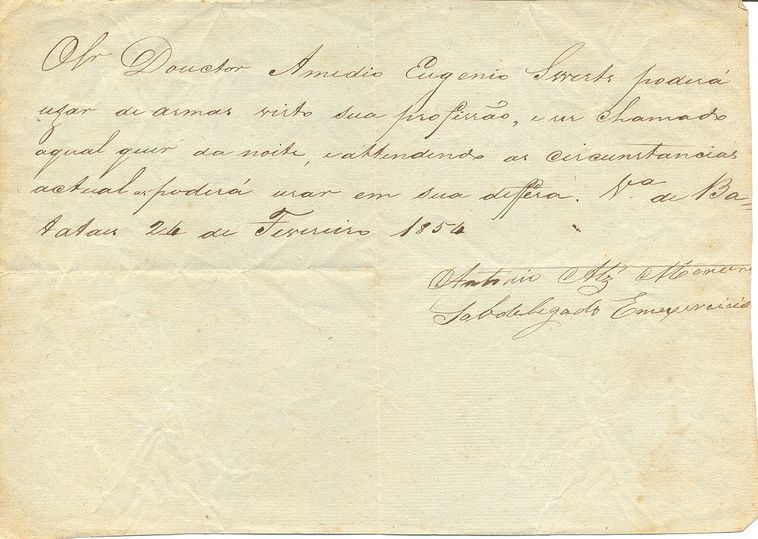 O Sr Douctor Amedio Eugenio Sewerts poderá
uzar de armas visto sua profissão, e ser chamado
aqual quer da noite, e attendendo as circunstancias
actual as poderá usar em sua differa. Va de Ba-
tataes 24 de Fevereiro 1854
Antonio Alz Moreira
Sobdelegado Emexercicio